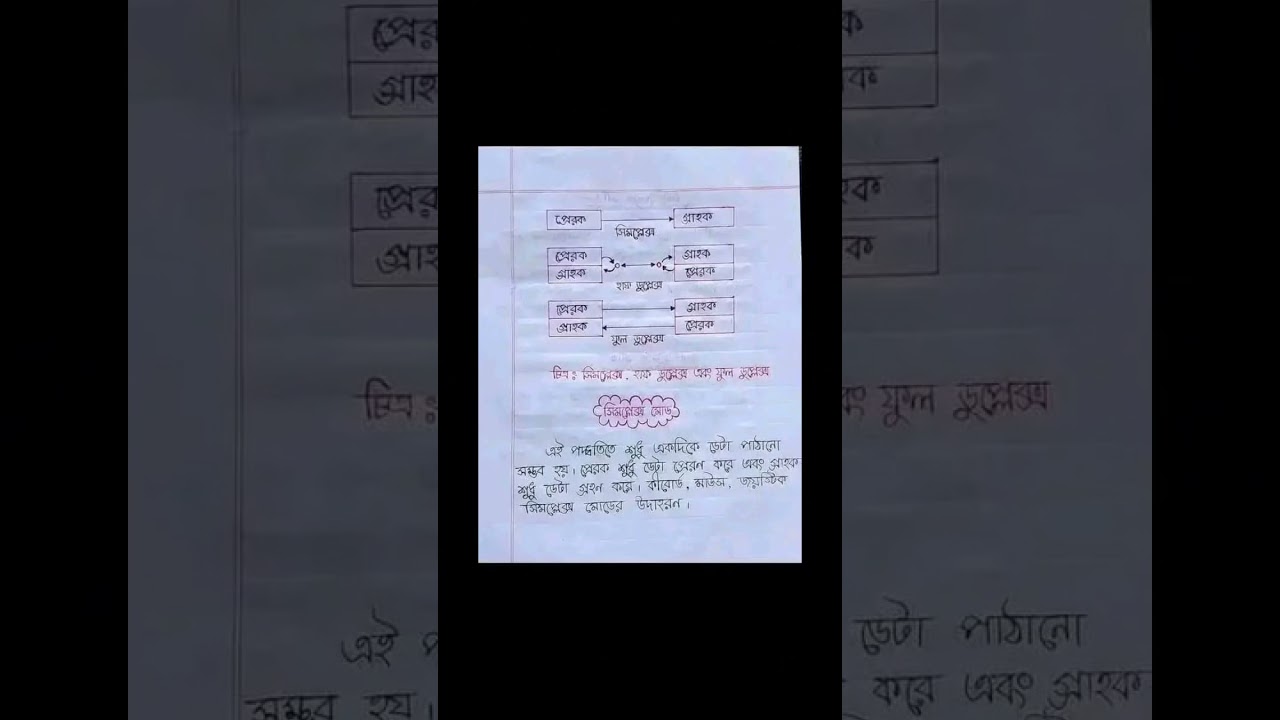 প্রেরক
গ্রাহক
সিমপ্লেক্স
প্রেরক
গ্রাহক
গ্রাহক
প্রেরক
হাফ ডুপ্লেক্স
প্রেরক
গ্রাহক
গ্রাহক
প্রেরক
ফুল ডুপ্লেক্স
চিত্র : সিমপ্লেক্স, হাফ ডুপ্লেক্স এবং ফুল ডুপ্লেক্স
সিমপ্লেক্স মোড
এই পদ্ধতিতে শুধু একদিকে ডেটা পাঠানো
সম্ভব হয়। প্রেরক শুধু ডেটা প্রেরন করে এবং গ্রাহক
শুধু ডেটা গ্রহন করে। কীবোর্ড, মাউস, জয়স্টিক
সিমপ্লেক্স মোডের উদাহরন।